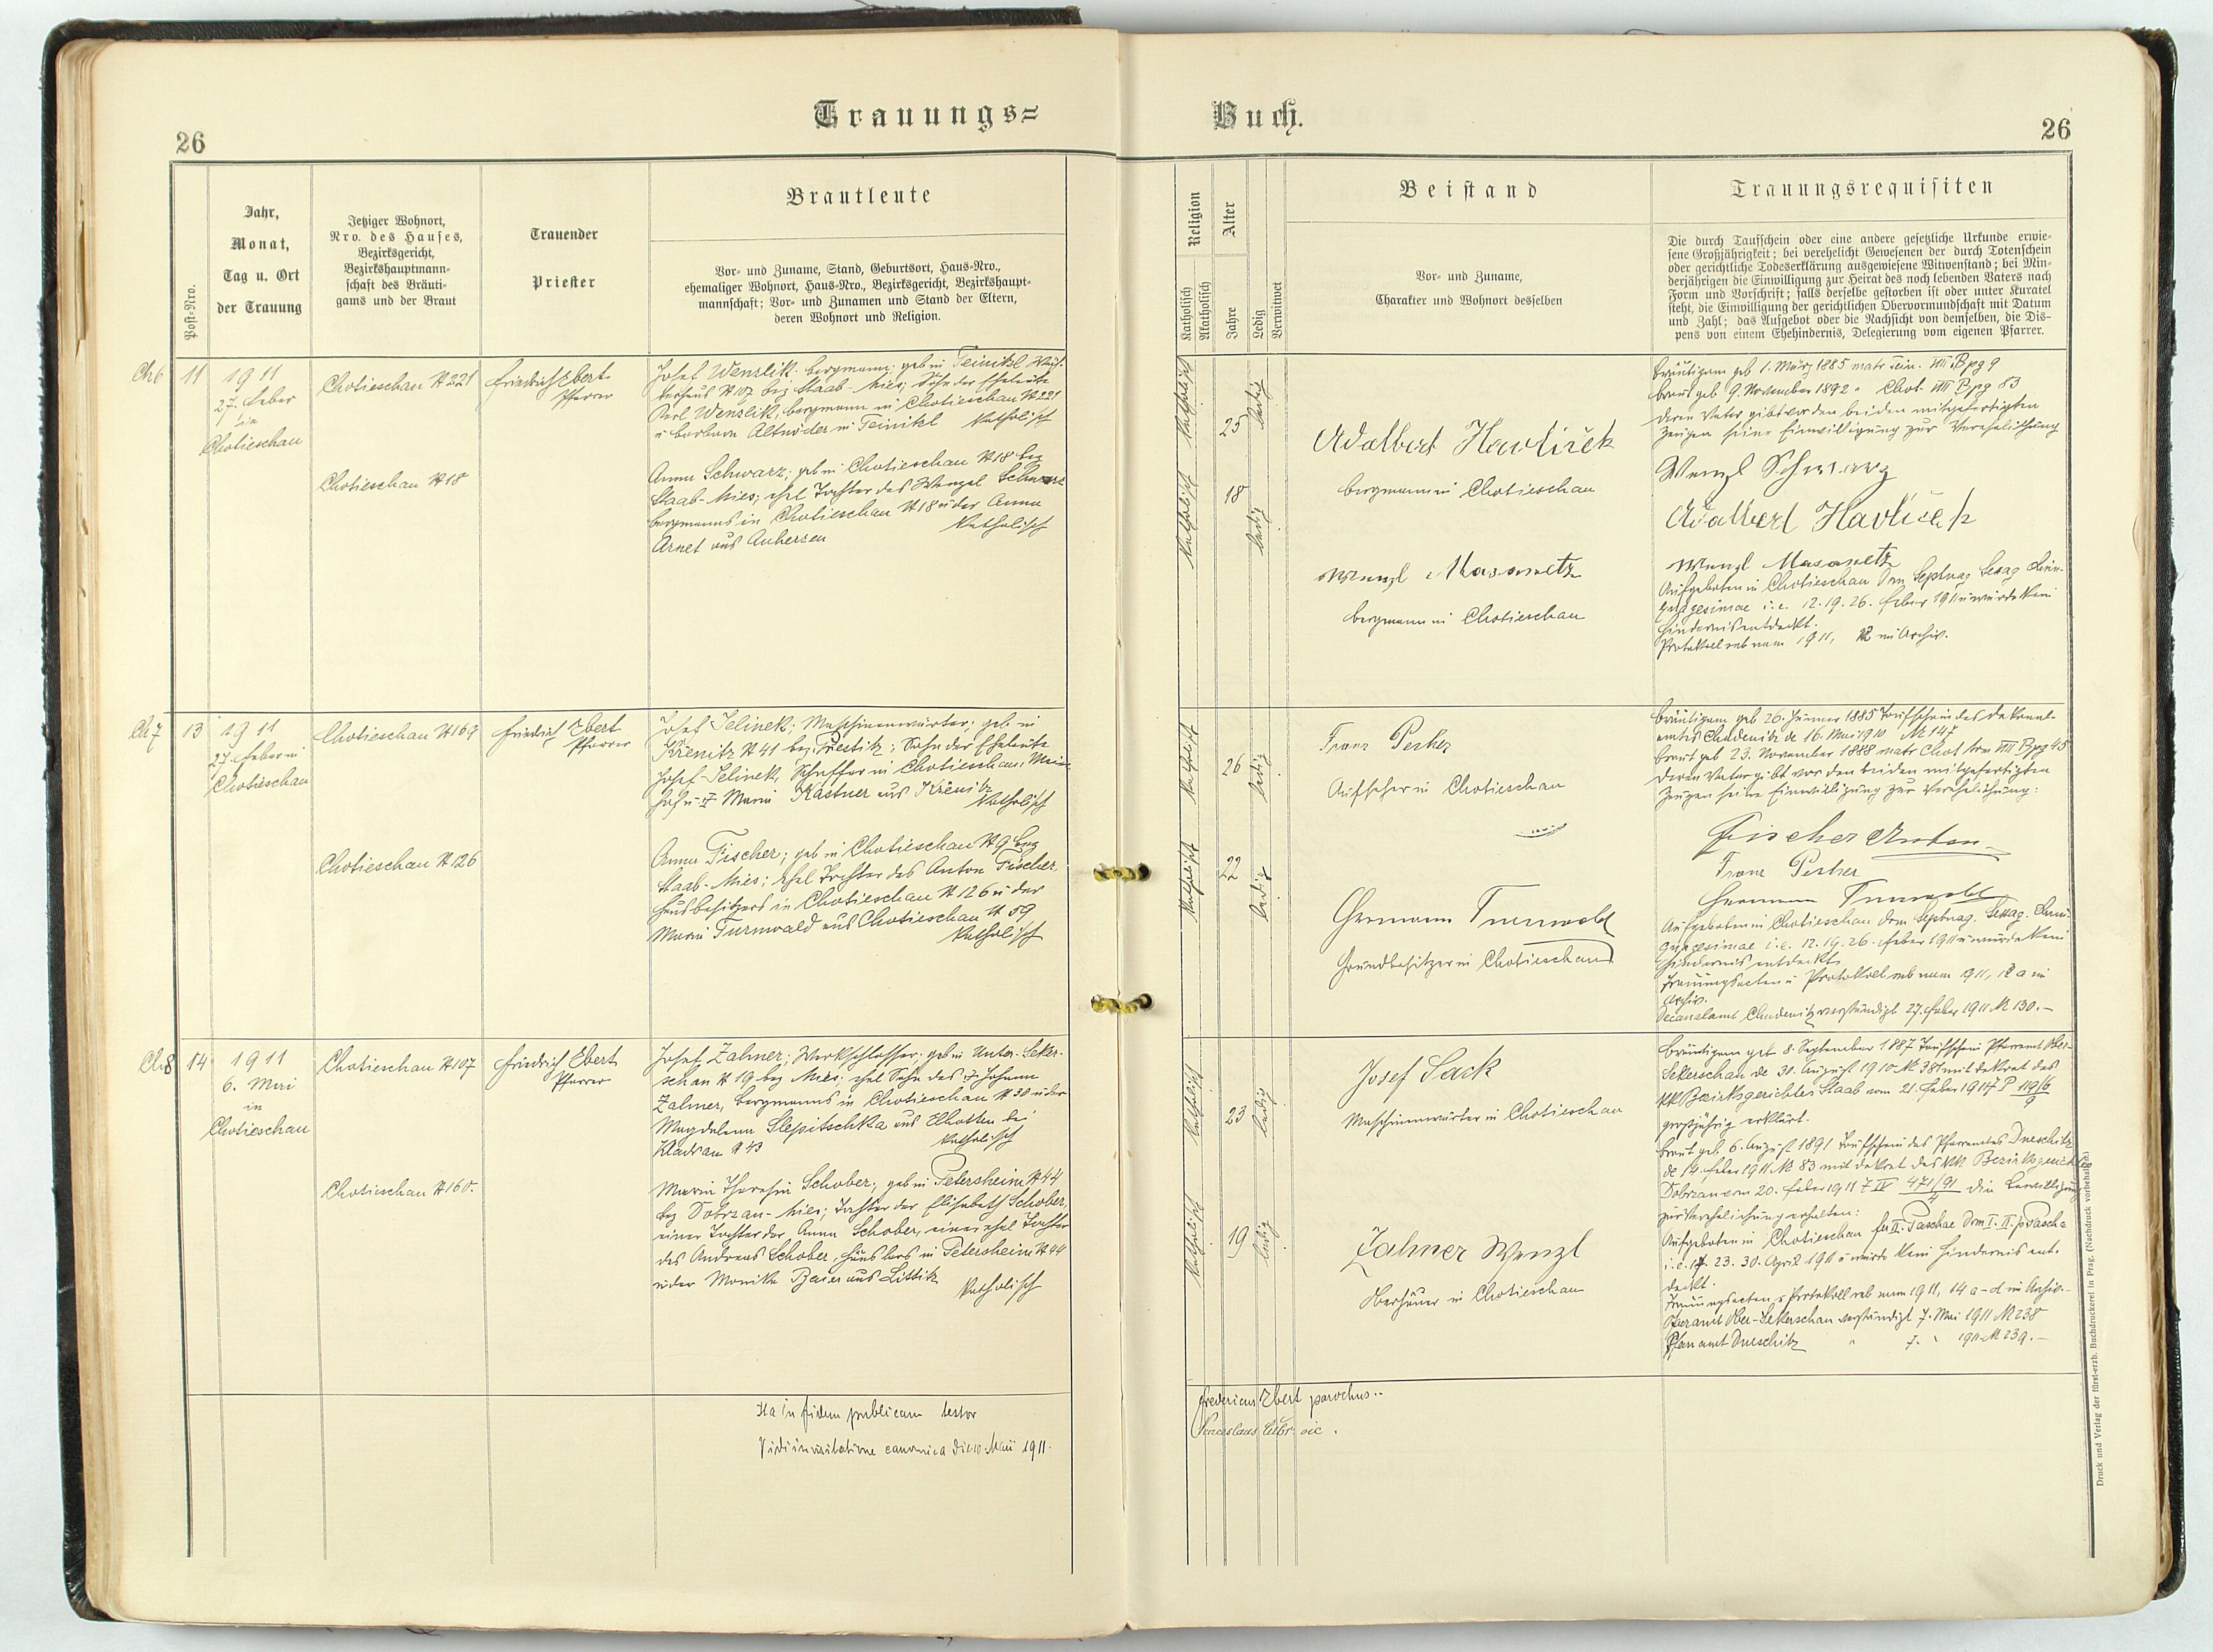 Trauungs=
Buch.
26
26
Post=Nro.
Jahr,
Monat,
Tag u. Ort
der Trauung
Jetziger Wohnort,
Nro. des Hauses,
Bezirksgericht,
Bezirkshauptmann=
schaft des Bräuti=
gams und der Braut
Trauender
Priester
Brautleute
Vor= und Zuname, Stand, Geburtsort, Haus=Nro.,
ehemaliger Wohnort, Haus=Nro., Bezirksgericht, Bezirkshaupt=
mannschaft; Vor= und Zunamen und Stand der Eltern,
deren Wohnort und Religion.
Religion
Katholisch
Akatholisch
Alter
Jahre
Ledig
Verwitwet
Beistand
Vor= und Zuname,
Charakter und Wohnort desselben
Trauungsrequisiten
Die durch Taufschein oder eine andere gesetzliche Urkunde erwie=
sene Großjährigkeit; bei verehelicht Gewesenen der durch Totenschein
oder gerichtliche Todeserklärung ausgewiesene Witwenstand; bei Min=
derjährigen die Einwilligung zur Heirat des noch lebenden Vaters nach
Form und Vorschrift; falls derselbe gestorben ist oder unter Kuratel
steht, die Einwilligung der gerichtlichen Obervormundschaft mit Datum
und Zahl; das Aufgebot oder die Nachsicht von demselben, die Dis=
pens von einem Ehehindernis, Delegierung vom eigenen Pfarrer.
Ch6
11
1911
27. Feber
in
Chotieschau
Chotieschau N 221
Chotieschau N 18
Friedrich Ebert
Pfarrer
Josef Wenzlik, bergmann; geb in Teinitzl
N 17 bez Staab-Mies; Sohn der Eheleute
Karl Wenzlik, bergmann in Chotieschau N 221
u barbara Altnöder in Teinitzl Katholisch
Anna Schwarz; geb in Chotieschau N 18 bez
Staab-Mies; ehel Tochter des Wenzel Schwarz
bergmanns in Chotieschau N 18 u der Anna
Arnet aus Auherzen Katholisch
Katholisch
25
ledig
Katholisch
18
ledig
Adalbert Havlíček
bergmann in Chotieschau
Wenzl Masanetz
bergmann in Chotieschau
bräutigam geb 1. März 1885 matr Tein. VIII B pg 9
braut geb 9. November 1892 " Chot. VIII B pg 83
deren Vater gibt vor den beiden mitgefertigten
Zeugen seine Einwilligung zur Verehelichung
Wenzl Schwarz
Adalbert Havlíček
Wenzl Masanetz
Aufgeboten in Chotieschau Dom Septuag Sexag Quin-
quagesimae i.e. 12. 19. 26. Feber 1911 u wurde kein
Hindernis entdeckt.
Protokoll sub num 1911, im Archiv.
Ch7
13
1911
27. Feber in
Chotieschau
Chotieschau N 169
Chotieschau N 126
Friedrich Ebert
Pfarrer
Josef Jelinek; Maschinenwärter; geb in
Křenitz N 41 bez. Prestitz; Sohn der Eheleute
Josef Jelinek, Schaffer in Chotieschau, Maier-
hof u Maria Kastner aus Křenitz
Katholisch
Anna Fischer; geb in Chotieschau N 9 bez
Staab-Mies; ehel Tochter des Anton Fischer,
Hausbesitzers in Chotieschau N 126 u der
Maria Turnwald aus Chotieschau N 59
Katholisch
Katholisch
26
ledig
Katholisch
22
ledig
Franz Pecher
Aufseher in Chotieschau
Hermann Turnwald
Grundbesitzer in Chotieschau
bräutigam geb 26. Jänner 1885 Taufschein des Dekanal-
amtes Chudenitz de 16. Mai 1910 N 147
braut geb 23. November 1888 matr Chot tom VIII B pg 45
deren Vater gibt vor den beiden mitgefertigten
Zeugen seine Einwilligung zur Verehelichung:
Fischer Anton
Franz Pecher
Hermann Turnwald
Aufgeboten in Chotieschau Dom Septuag. Sexag. Quin-
quagesimae i.e. 12. 19. 26. Feber 1911 u wurde kein
Hindernis entdeckt.
Trauungsacten u Protokoll sub num 1911, a im
Archiv.
Decanalamt Chudenitz verständigt 27. Feber 1911 N 130.-
Ch8
14
1911
6. Mai
in
Chotieschau
Chotieschau N 107
Chotieschau N 160.
Friedrich Ebert
Pfarrer
Josef Zahner; Werkschlosser; geb in Unter-Seker-
schan N 19 bez Mies; ehel Sohn des † Johann
Zahner, bergmanns in Chotieschau N 30 u der
Magdalena Slepitschka aus Elhotten bei
Kladrau N 43 Katholisch
Maria Theresia Schober; geb in Petersheim N 44
bez Dobrzan-Mies; Tochter der Elisabeth Schober,
einer Tochter der Anna Schober, einer ehel Tochter
des Andreas Schober, Häuslers in Petersheim N 44
u der Monika Baier aus Littitz
Katholisch
Katholisch
23
ledig
Katholisch
19
ledig
Josef Sack
Maschinenwärter in Chotieschau
Zahner Wenzl
Oberhäuer in Chotieschau
bräutigam geb 8. September 1887 Taufschein Pfarramt Ober-
Sekerschan de 30. August 1910 N 381 mit dekret des
kk Bezirksgerichtes Staab vom 21. Feber 1911 P 119/6
9
großjährig erklärt.
braut geb. 6. August 1891 Taufschein des Pfarramtes Dneschitz
de 14. Feber 1911 N 83 mit dekret des kk Bezirksgerichtes
Dobrzan vom 20. Feber 1911 Z IV 471/91 die Bewilligung
zur Verehelichung erhalten:
Aufgeboten in Chotieschau fer II. Paschae Dom I. II. p Pascha
i.e. 17. 23. 30. April 1911 u wurde kein Hindernis ent-
deckt.
Trauungsacten u Protokoll sub num 1911, 14 a-d im Archiv.-
Pfarramt Ober-Sekerschan verständigt 7. Mai 1911 N 238
Pfarramt Dneschitz " 7. " 1911 N 239.-
Ita in fidem publicam testor
Fredericus Ebert parochus..
Vidi in visitatione canonica die 10. Maii 1911.
Venceslaus
Druck und Verlag der fürst-erzb. Buchdruckerei in Prag. (Nachdruck vorbehalten.)